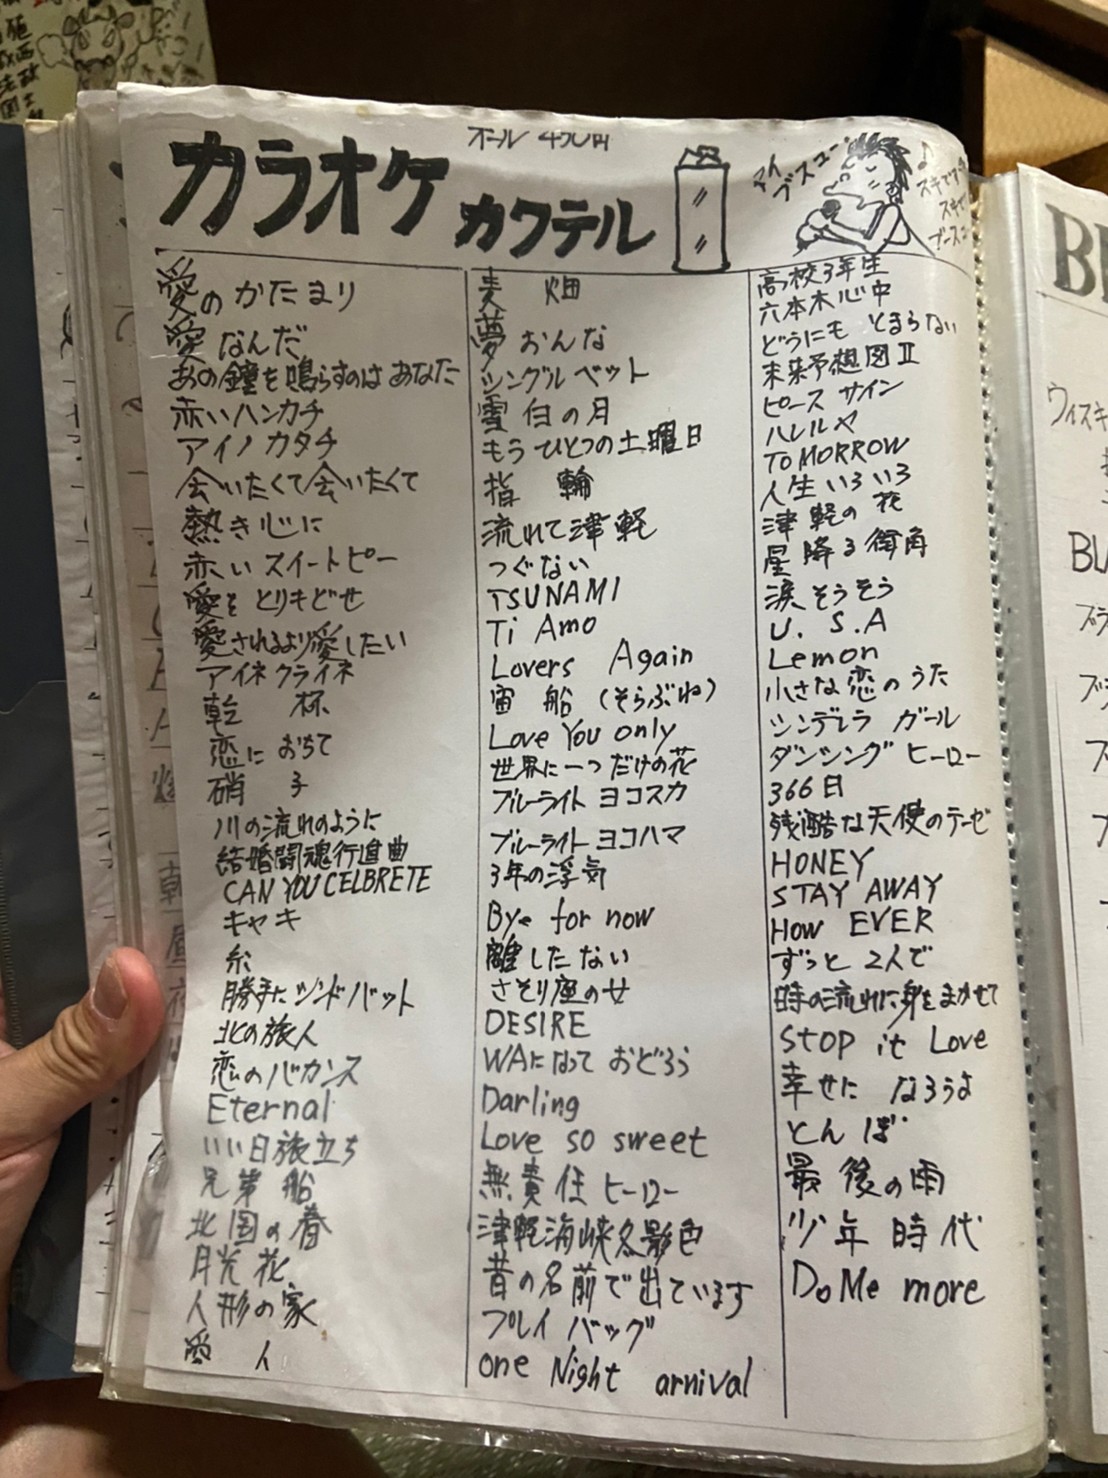 オール 450円
カラオケ カクテル
愛のかたまり
愛なんだ
あの鐘を鳴らすのはあなた
赤いハンカチ
アイノカタチ
会いたくて会いたくて
熱き心に
赤いスイートピー
愛をとりもどせ
愛されるより愛したい
アイネクライネ
乾 杯
恋におちて
硝 子
川の流れのように
結婚闘魂行進曲
CAN YOU CELBRETE
キヤキ
糸
勝手にシンドバット
北の旅人
恋のバカンス
Eternal
いい日旅立ち
兄弟船
北国の春
月光花
人形の家
愛 人
麦 畑
夢おんな
シングルベット
雪白の月
もうひとつの土曜日
指 輪
流れて津軽
つぐない
TSUNAMI
Ti Amo
Lovers Again
宙 船（そらぶね）
Love You only
世界に一つだけの花
ブルーライト ヨコスカ
ブルーライト ヨコハマ
3年の浮気
Bye for now
離したない
さそり座の女
DESIRE
WAになっておどろう
Darling
Love so sweet
無責任ヒーロー
津軽海峡冬影色
昔の名前で出ています
プレイバッグ
one Night arnival
高校3年生
六本木心中
どうにもとまらない
未来予想図Ⅱ
ピースサイン
ハレルヤ
TOMORROW
人生いろいろ
津軽の花
星降る街角
涙そうそう
U.S.A
Lemon
小さな恋のうた
シンデレラガール
ダンシングヒーロー
366日
残酷な天使のテーゼ
HONEY
STAY AWAY
HOW EVER
ずっと2人で
時の流れに身をまかせて
STOP it Love
幸せになろうよ
とんぼ
最後の雨
少年時代
Do Me more